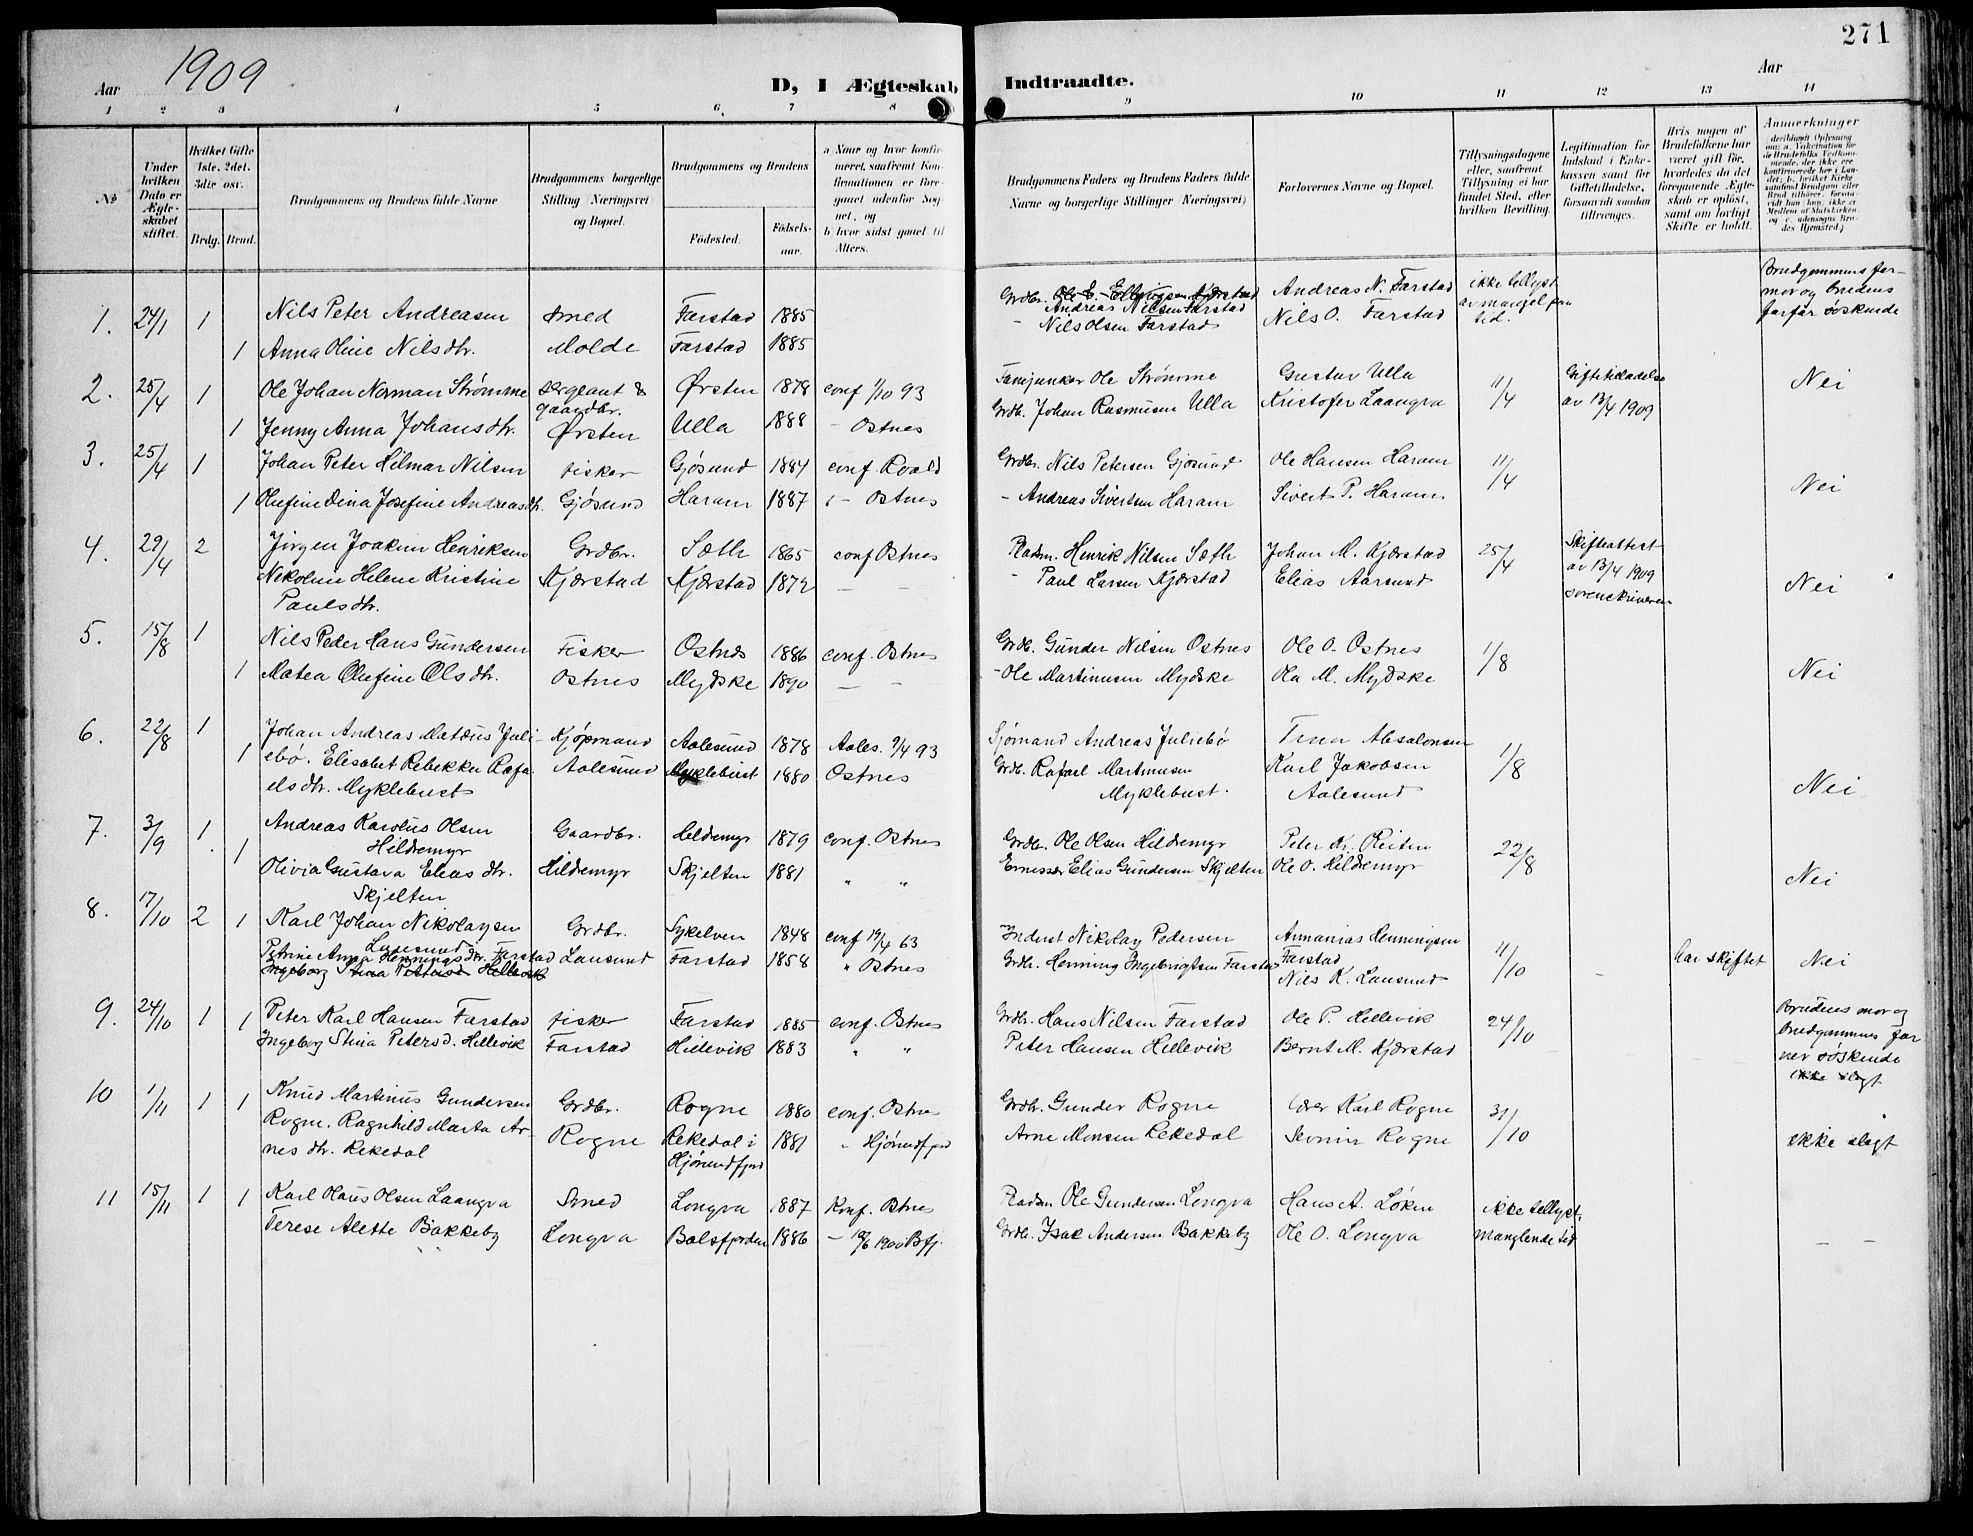 271
Aar 1909
D, I Ægteskab Indtraadte.
Aar
1 2 3 4 5 6. 7 8 9 10 11 12 13 14
№
Under hvilken Dato er Ægteskabet stiftet.
Hvilket Gifte 1ste, 2det, 3die osv.
Brdg. Brud.
Brudgommens og Brudens fulde Navne
Brudgommens borgerlige Stilling Næringsvei og Bopæl.
Brudgommens og Brudens
Födested.
Födselsaar.
a Naar og hvor konfirmeret, saafremt Konfirmationen er foregaaet udenfor Sognet, og
b hvor sidst gaaet til Alters.
Brudgommens Faders og Brudens Faders fulde Navne og borgerlige Stillinger Næringsvei)
Forlovernes Navne og Bopæl.
Tillysningsdagene eller, saafremt Tillysning ei har fundet Sted, efter hvilken Bevilling.
Legitimation for Indskud i Enkekassen samt for Giftetilladelse, forsaavidt saadan tiltrænges.
Hvis nogen af Brudefolkene har været gift før, hvorledes da det foregaaende Ægteskab er oplöst, samt om lovligt Skifte er holdt.
Anmerkninger
1. 24/1 1 Nils Peter Andreasen Smed Farstad 1885
1 Anna Oline Nilsdtr. Molde Farstad 1885
Grdbr. Ole E. Ellingsen Kjærstad
Andreas Nilsen Farstad
– Nils Olsen Farstad
Andreas N. Farstad
Nils O. Farstad
ikke tellyst av mangel paa tid.
Brudgommens farmor og brudens farfar søskende
2. 25/4 1 Ole Johan Norman Strømme Sergeant & gaardbr. Ørsten 1878 conf 1/10 93
1 Jenny Anna Johansdtr. Ørsten Ulla 1888 – Ostnes
Fanejunker Ole Strømme Gustav Ulla 11/4
Grdb. Johan Rasmusen Ulla Kristofer Laangva
Giftetilladelse av 13/4 1909
Nei
3. 25/4 1 Johan Peter Hilmar Nilsen Fisker Gjøsund 1884 conf Roald
1 Olufine Dina Josefine Andreasdt. Gjøsund Haram 1887 – Ostnes
Grdbr. Nils Petersen Gjøsund Ole Hansen Haram 11/4
– Andreas Sivertsen Haram Sivert P. Haram
Nei
4. 29/4 2 Jørgen Joakim Henriksen Grdbr. Sæth 1865 conf Ostnes
Nikoline Helene Kristine Kjærstad Kjærstad 1872 – –
Paulsdtr.
Pladsm. Henrik Nilsen Sæth Johan M. Kjærstad 25/4
– Paul Larsen Kjærstad Elias Aarsund
Skifteattest av 13/4 1909 sorenskriveren
Nei
5. 15/8 1 Nils Peder Hans Gundersen Fisker Ostnes 1886 conf. Ostnes
1 Matea Olufine Olsdtr. Ostnes Mydske 1890 – –
Grdb. Gunder Nilsen Ostnes Ole O. Ostnes 1/8
– Ole Martinusen Mydske Ola M. Mydske
Nei
6. 22/8 1 Johan Andreas Matæus Juli- Kjøpmand Aalesund 1878 Aales. 9/4 93
1 ebø. Elisabet Rebekka Rafa- Aalesund Myklebust 1880 Ostnes
elsdtr. Myklebust
Sjømand Andreas Juliebø Trna Absalonsen 1/8
Grdb. Rafael Martinusen Karl Jakobsen
Myklebust. Aalesund
Nei
7. 3/9 1 Andreas Karolus Olsen Gaardbr. Heldremyr 1879 conf. Ostnes
Hildremyr
1 Olivia Gustava Eliasdtr. Hildremyr Skjelten 1881 " "
Skjelten
Grdbr. Ole Olsen Hildremyr Peter Kr. Reiten 22/8
Elias Gundersen Skjelten Ole O. Hildremyr
Nei
8. 17/10 2 1 Karl Johan Nikolaysen Grdbr. Sykelven 1848 conf 19/4 63
Lausund
Petrine Anna Henningsdtr. Farstad Lausund Farstad 1858 " Ostnes
Ingeborg Stina Petersd. Hellevik
Inderst Nikolay Pedersen Annanias Henningsen 11/10
Grdb. Henning Ingebrigtsen Farstad Farstad
Nils K. Lausund
– har skiftet Nei
9. 24/10 1 1 Peter Karl Hansen Farstad Fisker Farstad 1885 conf. Ostnes
Ingeborg Stina Petersd. Hellevik Farstad Hellevik 1883 " "
Grdbr. Hans Nilsen Farstad Ole P. Hellevik 24/10
Peter Hansen Hellevik Bernt M. Kjærstad
Brudens mor og brudgommens far var søskende
ikke slegt
10 1/11 1 1 Knud Martinus Gundersen Grdbr. Rogne 1880 conf. Ostnes
Rogne. Ragnhild Marta Ar- Rogne Rekedal i 1881 " Hjørundfjord
nesdtr. Rekedal Hjørundfjord
Grdbr. Gunder Rogne Karl Rogne 31/10
Arne Monsen Rekedal Severin Rogne
ikke slegt
11 15/11 1 1 Karl Olaus Olsen Laangva Smed Longva 1887 Konf. Ostnes
Terese Alette Bakkeby Longva Balsfjorden 1886 – 10/6 1900 Bfj.
Pladsm Ole Gundersen Longva Hans A. Løken ikke tellyst,
Grdb. Isak Andersen Bakkeby Ole O. Longva manglende tid
– –